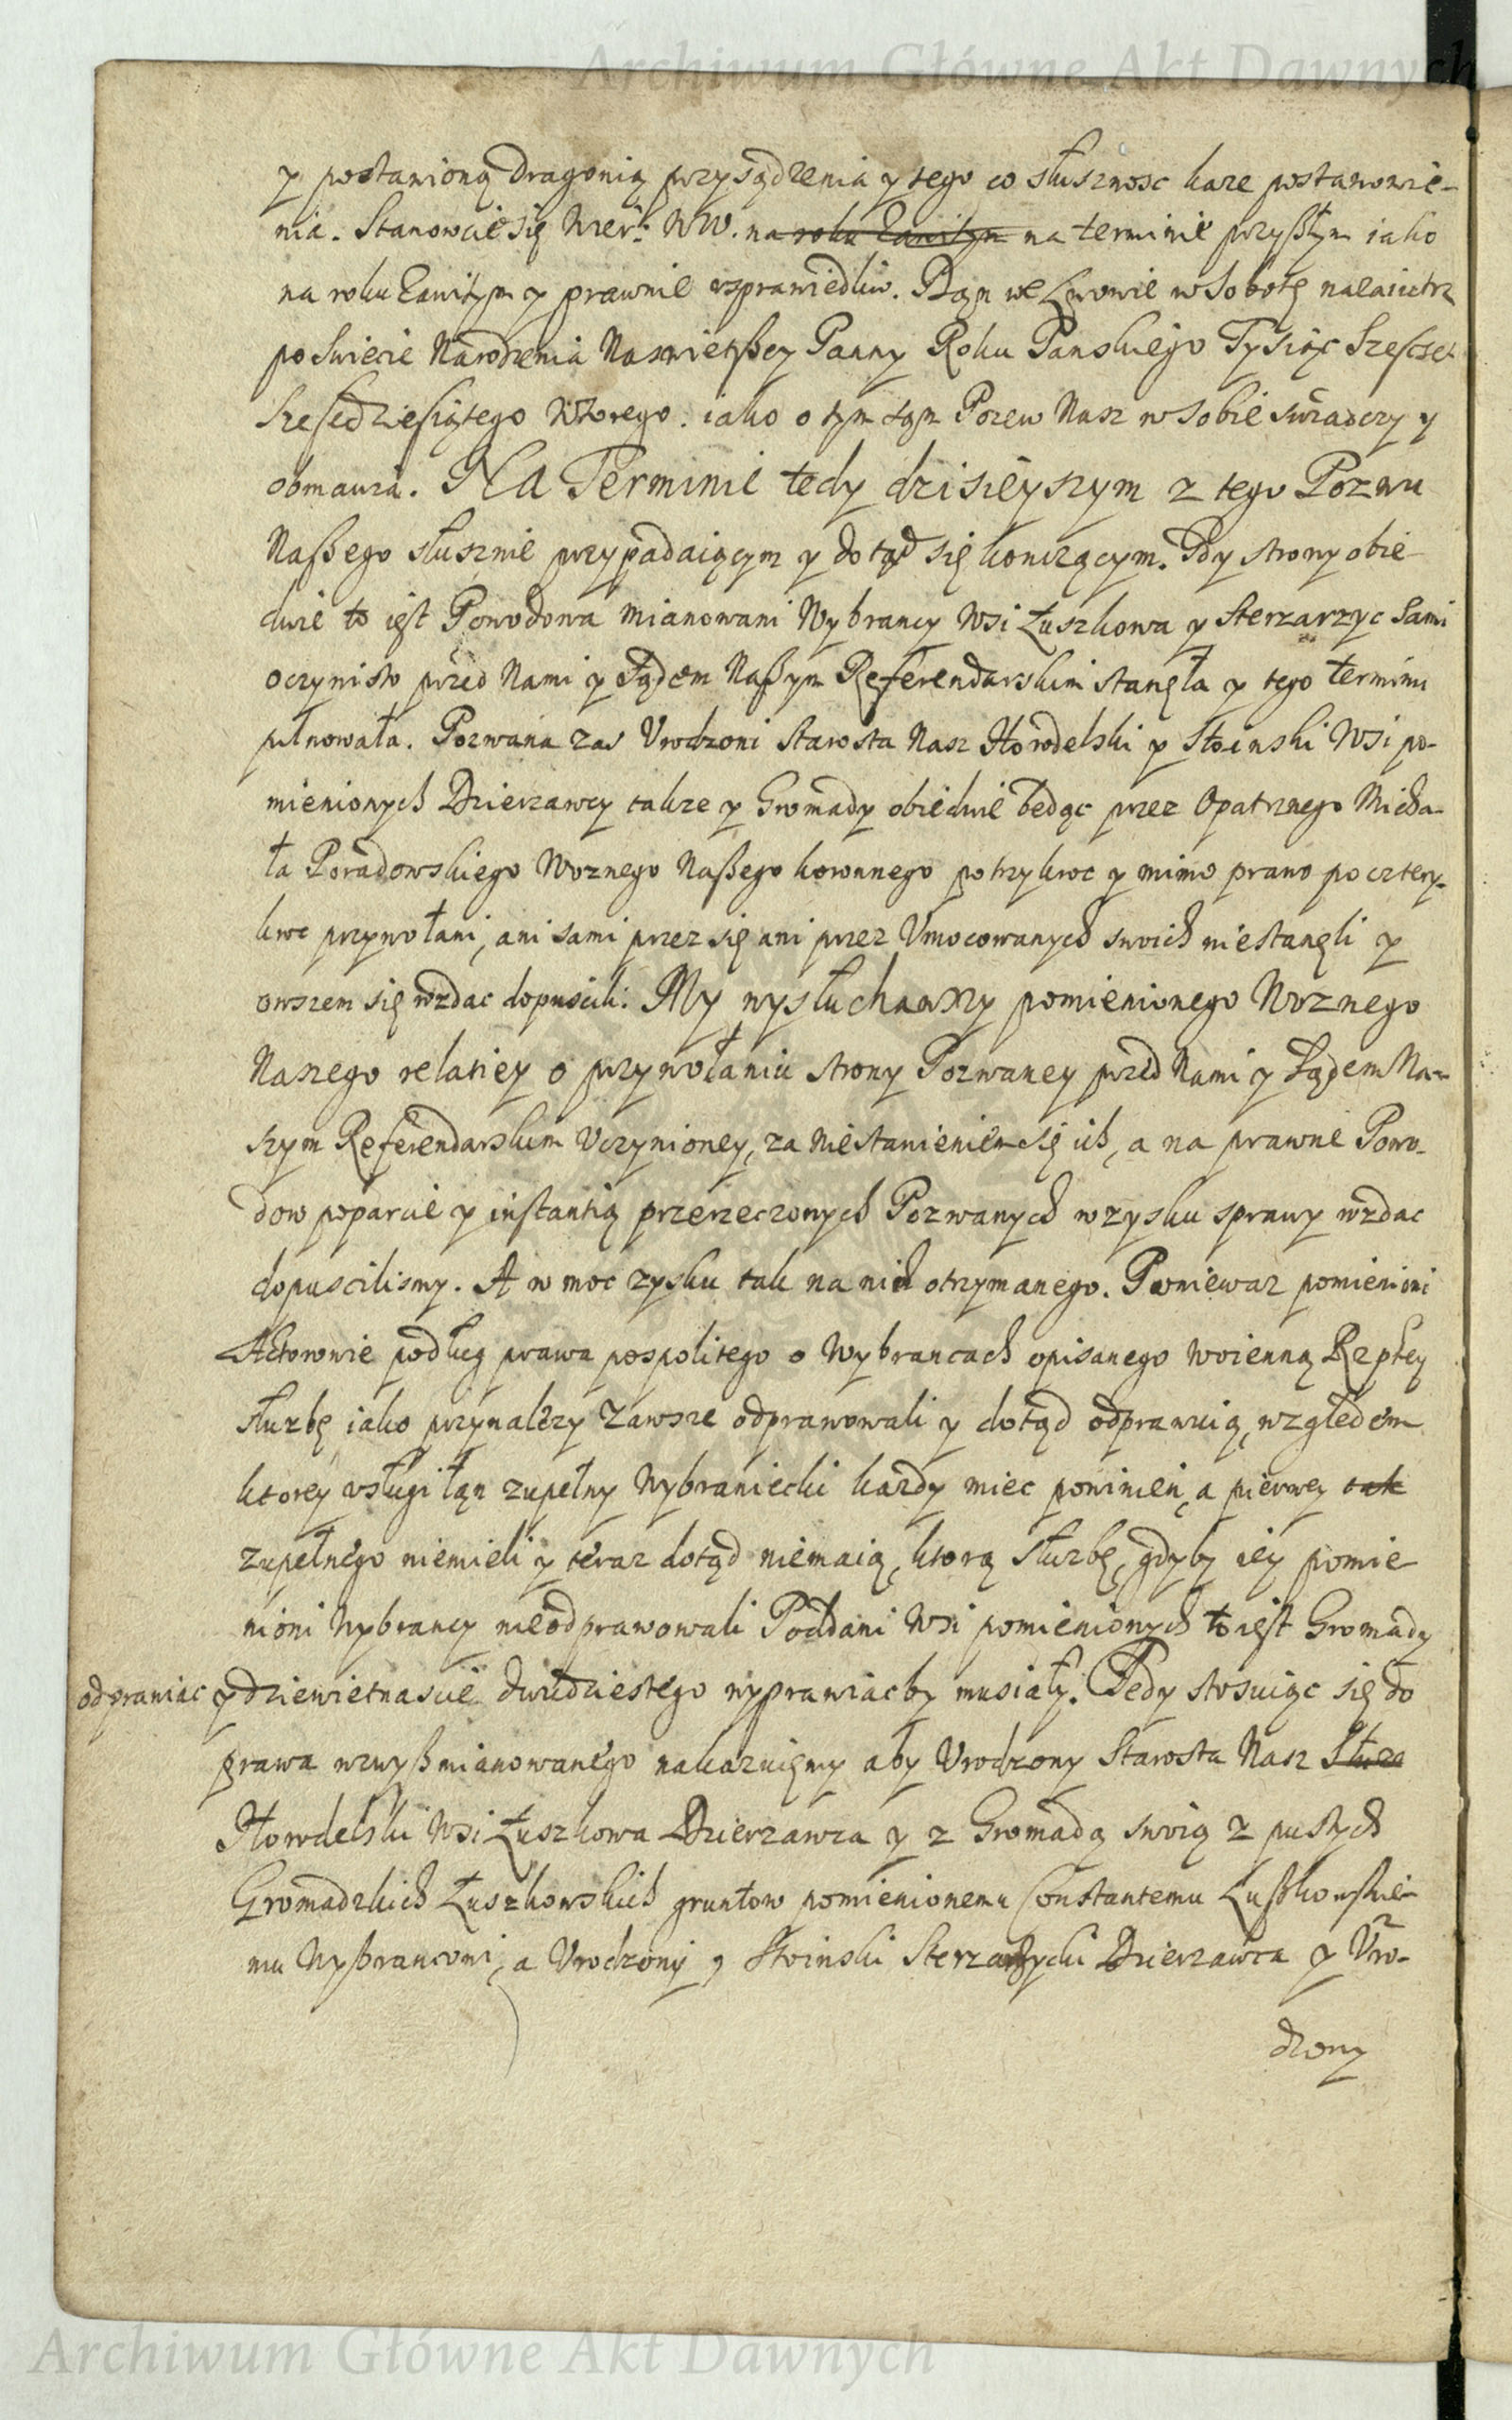 Archiwum Główne Akt Dawnych
y postanioną Dragonią przysądzenia y tego co słusznosc kaze postanowie-
nia. Stanowcie się Wier. WW. na roku Zawitym na terminie przyßłym iako
na roku Zawitym y prawnie usprawiedliw. Dan we Lwowie w Sobotę nazaiutrz
po Swiecie Narodzenia Naswiętßey Panny Roku Panskiego Tysiąc Szescset
Szescdziesiątego Wtorego. iako o tym tym Pozew Nasz w sobie swiadczy y
obmawia. NA Terminie tedy dzisieyszym z tego Pozwu
Naßego słusznie przypadaiącym y dotąd się konczącym. Gdy strony obie
dwie to iest Powodowa mianowani Wybrancy Wsi Łuszkowa y Sterzarzyc Sami
oczywisto przed Nami y Sądem Naßym Referendarskim stanęła y tego terminu
pilnowała. Pozwana zas Urodzoni Starosta Nasz Horodelski y Słoinski Wsi po-
mienionych Dzierzawcy takze y Gromady obiedwie będąc przez Opatrznego Micha-
ła Poradowskiego Woznego Naßego koronnego po trzykroc y mimo prawo po cztery-
kroc przywołani, ani sami przez się ani przez Umocowanych swoich nie stanęli y
owszem się wzdac dopuscili. My wysłuchawszy pomienionego Woznego
Naszego relatiey o przywołaniu strony Pozwaney przed Nami y Sądem Na-
szym Referendarskim Uczynioney, za niestanieniem się ich, a na prawne Powo-
dow poparcie y instantią przerzeczonych Pozwanych w zysku sprawy wzdac
dopuscilismy. A w moc zysku tak na nich otrzymanego. Poniewaz pomienieni
Actorowie podług prawa pospolitego o Wybrancach opisanego Woienną Rzptey
słuzbę iako przynalezy zawsze odprawowali y dotąd odprawuią, względem
ktorey usługi łan zupełny Wybraniecki kazdy miec powinien, a pierwey tak
zupełnego niemieli y teraz dotąd niemaią, ktorą słuzbę, gdyby iey pomie
nioni Wybrancy nieodprawowali Poddani Wsi pomienionych to iest Gromady
odprawiac y dziewietnascie dwudziestego wyprawiac by musiały. Tedy stosuiąc się do
prawa wzwyß mianowanego nakazuięmy aby Urodzony Starosta Nasz
Horodelski Wsi Łuszkowa Dzierzawca y z Gromadą swoią z pustych
Gromadzkich Łuszkowskich gruntow pomienionemu Constantemu Łußkowskie-
mu Wybrancowi, a Urodzony Słoinski Sterzarzycki Dzierzawca y Uro-
dzony
Archiwum Główne Akt Dawnych